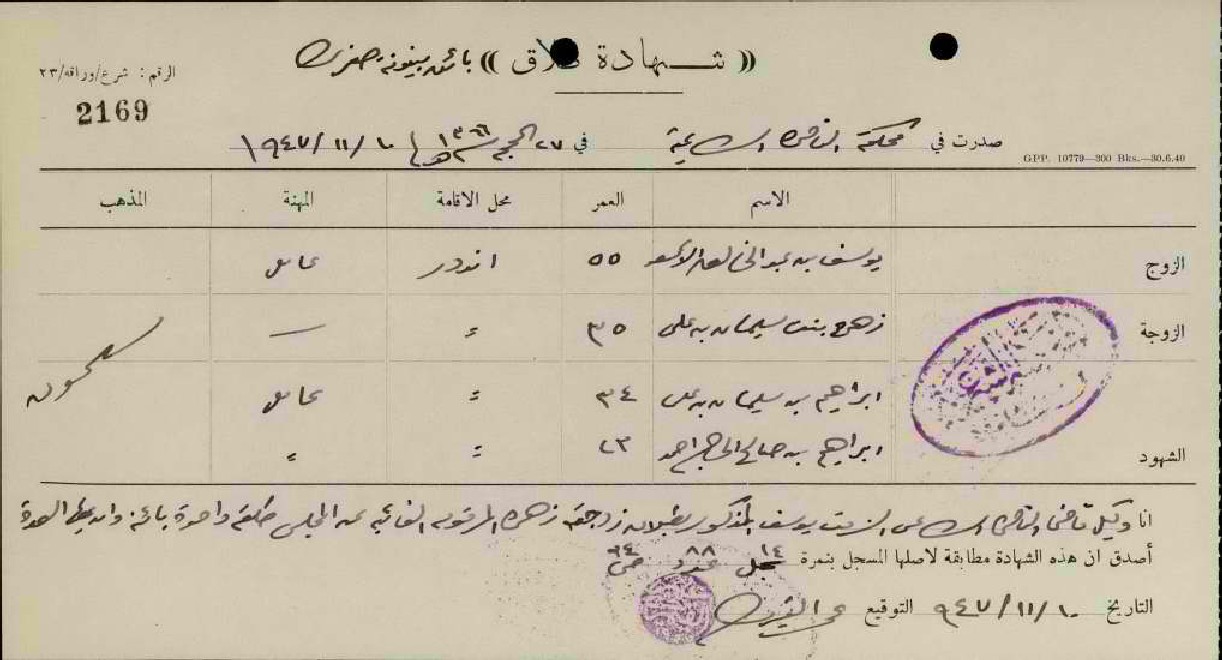 « شهادة طلاق » بائن بينونة صغرى
الرقم : شرع/وراقه/٢٣
2169
صدرت في محكمة الناصرة الشرعية في ٢٧ الحجة سنة ١٣٦٦هـ ١٠/١١/١٩٤٧
GPP. 10779—300 Bks.—30.6.40
الاسم العمر محل الاقامة المهنة المذهب
الزوج يوسف بن عبد ٥٥ اندور عامل
الزوجة زهرة بنت سليمان بن علي ٣٥ ״ —
مسلمون
ابراهيم بن سليمان بن علي ٣٤ ״ عامل
الشهود ابراهيم بن صالح الحاج احمد ٢٣ ״ ״
انا وكيل قاضي الناصرة الشرعي يوسف المذكور زوجته زهرة المرقومة الغائبة عن المجلس طلقة واحدة بائنة العدة
أصدق ان هذه الشهادة مطابقة لاصلها المسجل بنمرة ١٤ سجل عدد ٨٨ ص ٣٤
التاريخ ١٠/١١/٩٤٧ التوقيع